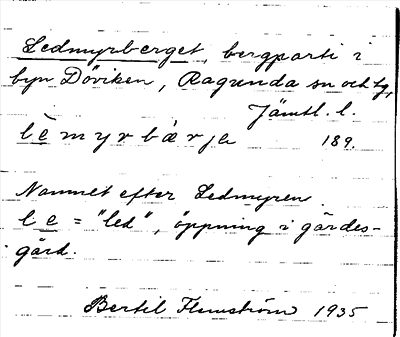 Ledmyrberget, bergparti i
byn Döviken, Ragunda sn och tg,
Jämtl. l.
lè m y r b à r ja 189.
Namnet efter Ledmyren.
l e = "led", öppning i gärdes-
gård.
Bertil Flemström 1935